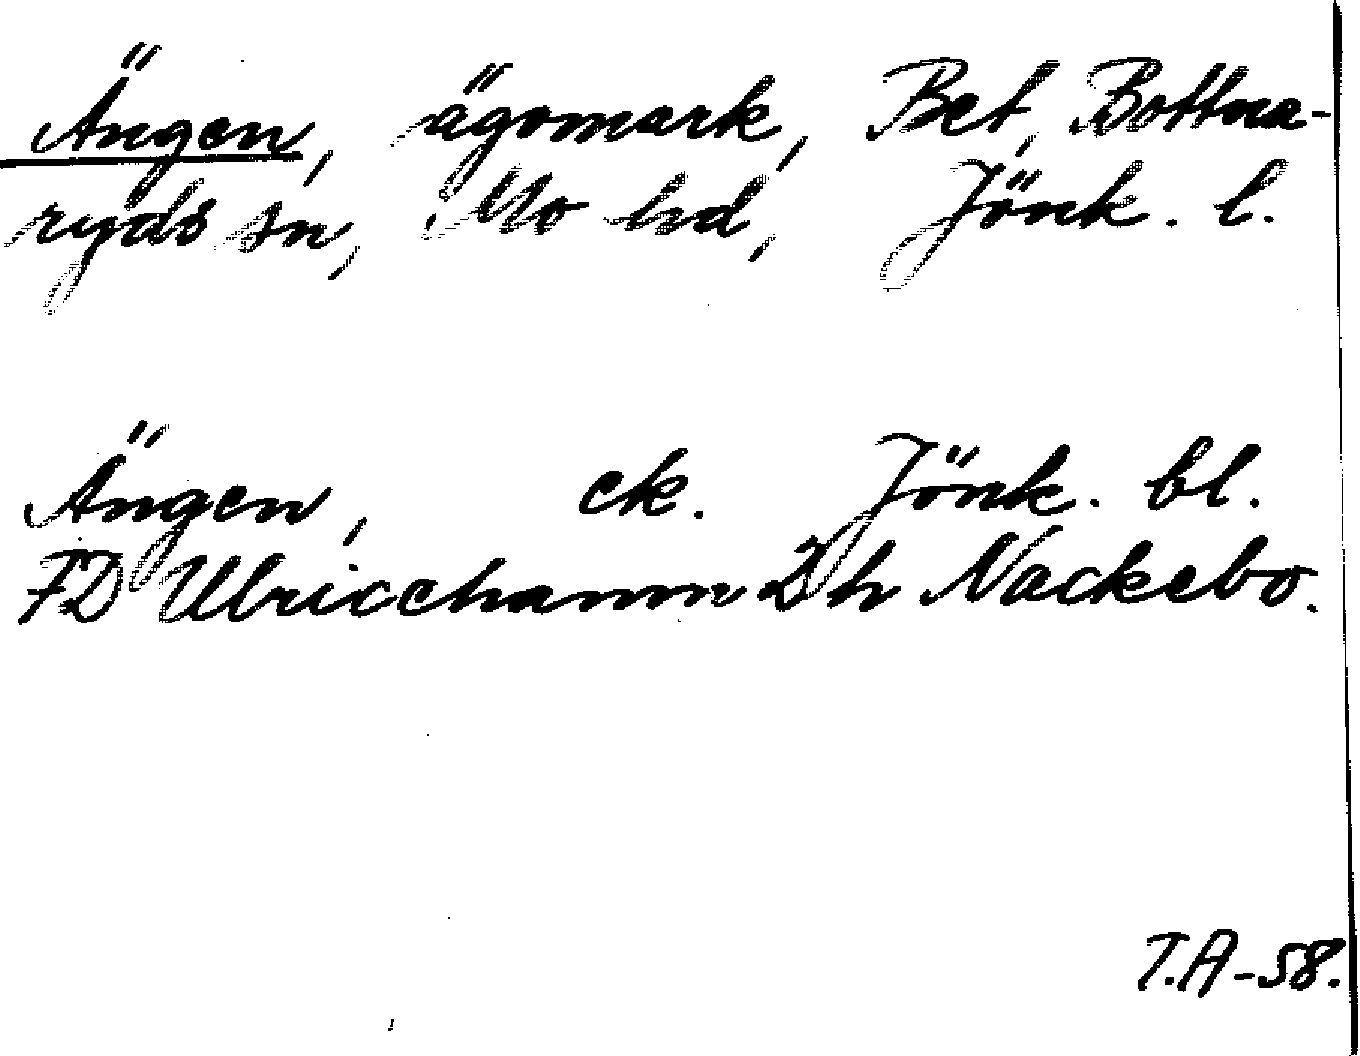 Ängen, ägomark, Bet, Bottna-
ryds sn, Mo hd, Jönk. l.
Ängen, ek. Jönk. bl.
FD Ulricehamn Dh Nackebo.
T.A-58.